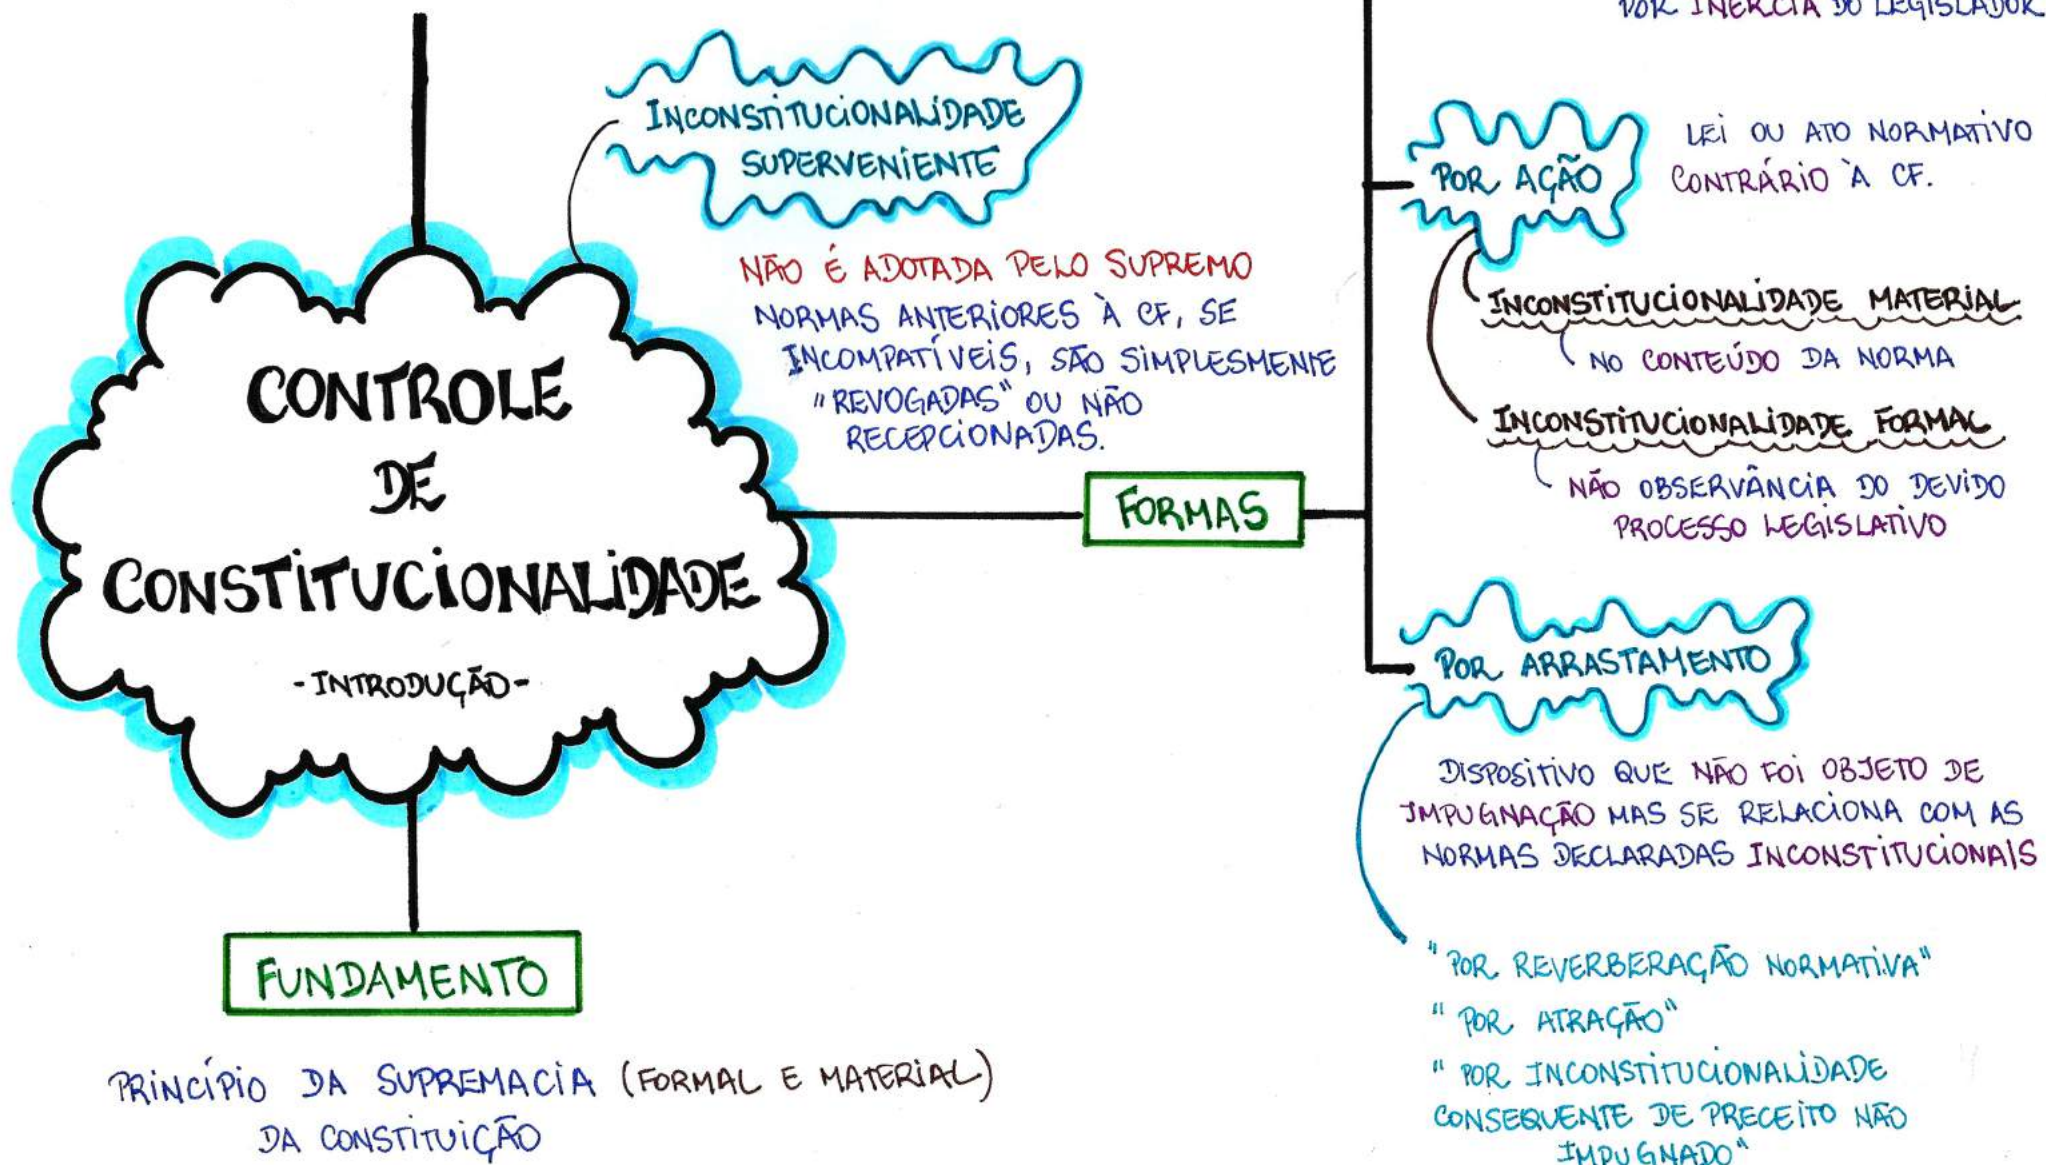 POR INÉRCIA DO LEGISLADOR
INCONSTITUCIONALIDADE
SUPERVENIENTE
NÃO É ADOTADA PELO SUPREMO
NORMAS ANTERIORES À CF, SE
INCOMPATÍVEIS, SÃO SIMPLESMENTE
"REVOGADAS" OU NÃO
RECEPCIONADAS.
CONTROLE
DE
CONSTITUCIONALIDADE
-INTRODUÇÃO-
FORMAS
POR AÇÃO
LEI OU ATO NORMATIVO
CONTRÁRIO À CF.
INCONSTITUCIONALIDADE MATERIAL
NO CONTEÚDO DA NORMA
INCONSTITUCIONALIDADE FORMAL
NÃO OBSERVÂNCIA DO DEVIDO
PROCESSO LEGISLATIVO
POR ARRASTAMENTO
DISPOSITIVO QUE NÃO FOI OBJETO DE
IMPUGNAÇÃO MAS SE RELACIONA COM AS
NORMAS DECLARADAS INCONSTITUCIONAIS
"POR REVERBERAÇÃO NORMATIVA"
"POR ATRAÇÃO"
"POR INCONSTITUCIONALIDADE
CONSEQUENTE DE PRECEITO NÃO
IMPUGNADO"
FUNDAMENTO
PRINCÍPIO DA SUPREMACIA (FORMAL E MATERIAL)
DA CONSTITUIÇÃO